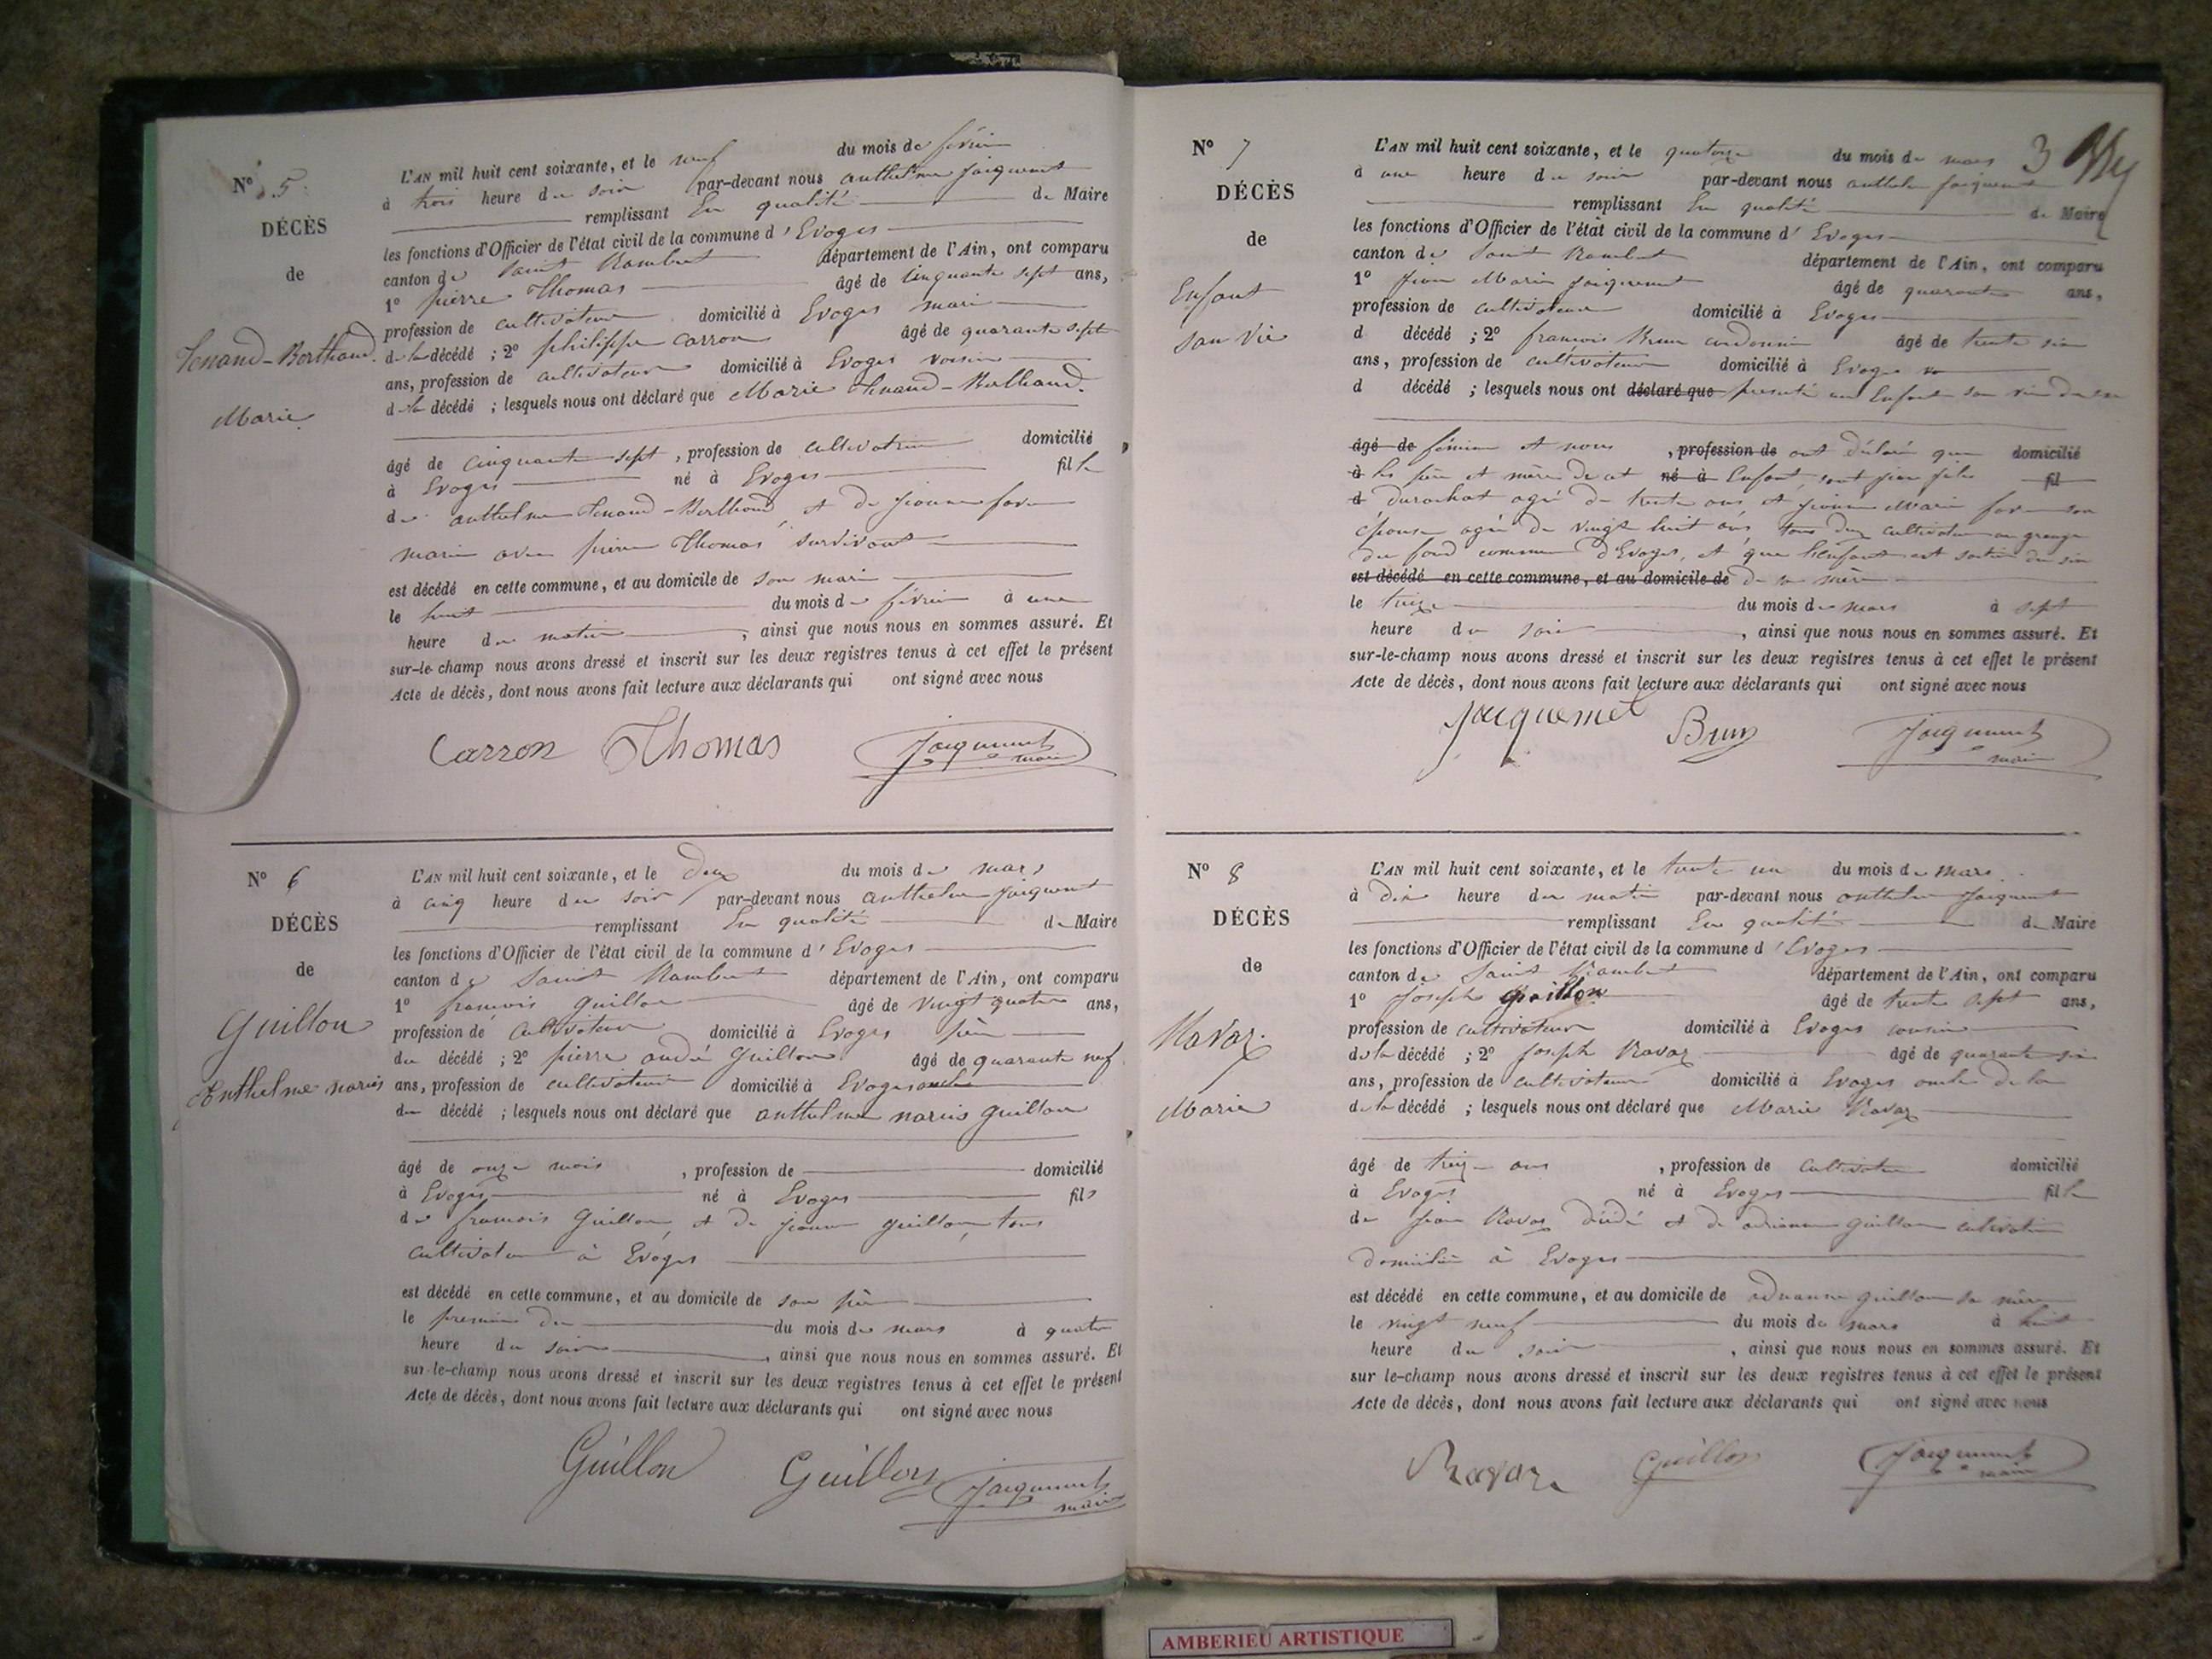 N° 5.
DÉCÈS
de
Tenand-Berthaud.
Marie
L'AN mil huit cent soixante, et le neuf du mois de février
à trois heure du soir par-devant nous anthelme Jacquemet
remplissant En qualité de Maire
les fonctions d'Officier de l'état civil de la commune d'Evoges
canton de Saint Rambert département de l'Ain, ont comparu
1° pierre Thomas âgé de cinquante sept ans,
profession de cultivateur domicilié à Evoges mari
de la décédé ; 2° philippe Carron âgé de quarante sept
ans, profession de cultivateur domicilié à Evoges voisin
de la décédé ; lesquels nous ont déclaré que Marie Tenand-Berthaud.
âgé de cinquante sept, profession de cultivatrice domicilié
à Evoges né à Evoges fille
de anthelme Tenand-Berthaud, et de jeanne favre
mariée avec pierre Thomas survivant
est décédé en cette commune, et au domicile de son mari
le huit du mois de février à une
heure du matin, ainsi que nous nous en sommes assuré. Et
sur-le-champ nous avons dressé et inscrit sur les deux registres tenus à cet effet le présent
Acte de décès, dont nous avons fait lecture aux déclarants qui ont signé avec nous
Carron Thomas Jacquemet
maire
N° 6
DÉCÈS
de
Guillon
Anthelme narcis
L'AN mil huit cent soixante, et le deux du mois de mars
à cinq heure du soir par-devant nous anthelme Jacquemet
remplissant En qualité de Maire
les fonctions d'Officier de l'état civil de la commune d'Evoges
canton de Saint Rambert département de l'Ain, ont comparu
1° françois Guillon âgé de vingt quatre ans,
profession de cultivateur domicilié à Evoges père
du décédé ; 2° pierre andré Guillon âgé de quarante neuf
ans, profession de cultivateur domicilié à Evoges oncle
du décédé ; lesquels nous ont déclaré que anthelme narcis guillon
âgé de onze mois, profession de domicilié
à Evoges né à Evoges fils
de françois Guillon, et de jeanne guillon, tous
cultivateur à Evoges
est décédé en cette commune, et au domicile de son père
le premier du du mois de mars à quatre
heure du soir, ainsi que nous nous en sommes assuré. Et
sur-le-champ nous avons dressé et inscrit sur les deux registres tenus à cet effet le présent
Acte de décès, dont nous avons fait lecture aux déclarants qui ont signé avec nous
Guillon Guillon Jacquemet
maire
3
N° 7
DÉCÈS
de
Enfant
san vie
L'AN mil huit cent soixante, et le quatorze du mois de mars
à une heure du soir par-devant nous anthelme Jacquemet
remplissant En qualité de Maire
les fonctions d'Officier de l'état civil de la commune d'Evoges
canton de Saint Rambert département de l'Ain, ont comparu
1° Jean Marie Jacquemet âgé de quarante ans,
profession de cultivateur domicilié à Evoges
d décédé ; 2° françois Brun cordonnier âgé de trente six
ans, profession de cultivateur domicilié à Evoges
d décédé ; lesquels nous ont déclaré que presenté un Enfant san vie du sexe
âgé de féminin et nous, profession de ont déclaré que domicilié
à les père et mère de cet né à Enfant, sont fil
d âgé de trente ans et jeanne Marie favre son
épouse agée de vingt huit ans tous deux cultivateur au grange
du fond commune d'Evoges, et que l'enfant est sortie du sin
est décédé en cette commune, et au domicile de de sa mère
le treize du mois de mars à sept
heure du soir, ainsi que nous nous en sommes assuré. Et
sur-le-champ nous avons dressé et inscrit sur les deux registres tenus à cet effet le présent
Acte de décès, dont nous avons fait lecture aux déclarants qui ont signé avec nous
Jacquemet Brun Jacquemet
maire
N° 8
DÉCÈS
de
Ravaz.
Marie
L'AN mil huit cent soixante, et le trente un du mois de mars
à dix heure du matin par-devant nous anthelme Jacquemet
remplissant En qualité de Maire
les fonctions d'Officier de l'état civil de la commune d'Evoges
canton de Saint Rambert département de l'Ain, ont comparu
1° Joseph guillon âgé de trente sept ans,
profession de cultivateur domicilié à Evoges cousin
de la décédé ; 2° Joseph Ravaz âgé de quarante six
ans, profession de cultivateur domicilié à Evoges oncle de la
de la décédé ; lesquels nous ont déclaré que Marie Ravaz
âgé de treize ans, profession de cultivatrice domicilié
à Evoges né à Evoges fille
de jean Ravaz décédé et de adrianne guillon cultivatrice
domiciliée à Evoges
est décédé en cette commune, et au domicile de adrianne guillon sa mère
le vingt neuf du mois de mars à huit
heure du soir, ainsi que nous nous en sommes assuré. Et
sur le-champ nous avons dressé et inscrit sur les deux registres tenus à cet effet le présent
Acte de décès, dont nous avons fait lecture aux déclarants qui ont signé avec nous
Ravaz Guillon Jacquemet
maire
AMBERIEU ARTISTIQUE